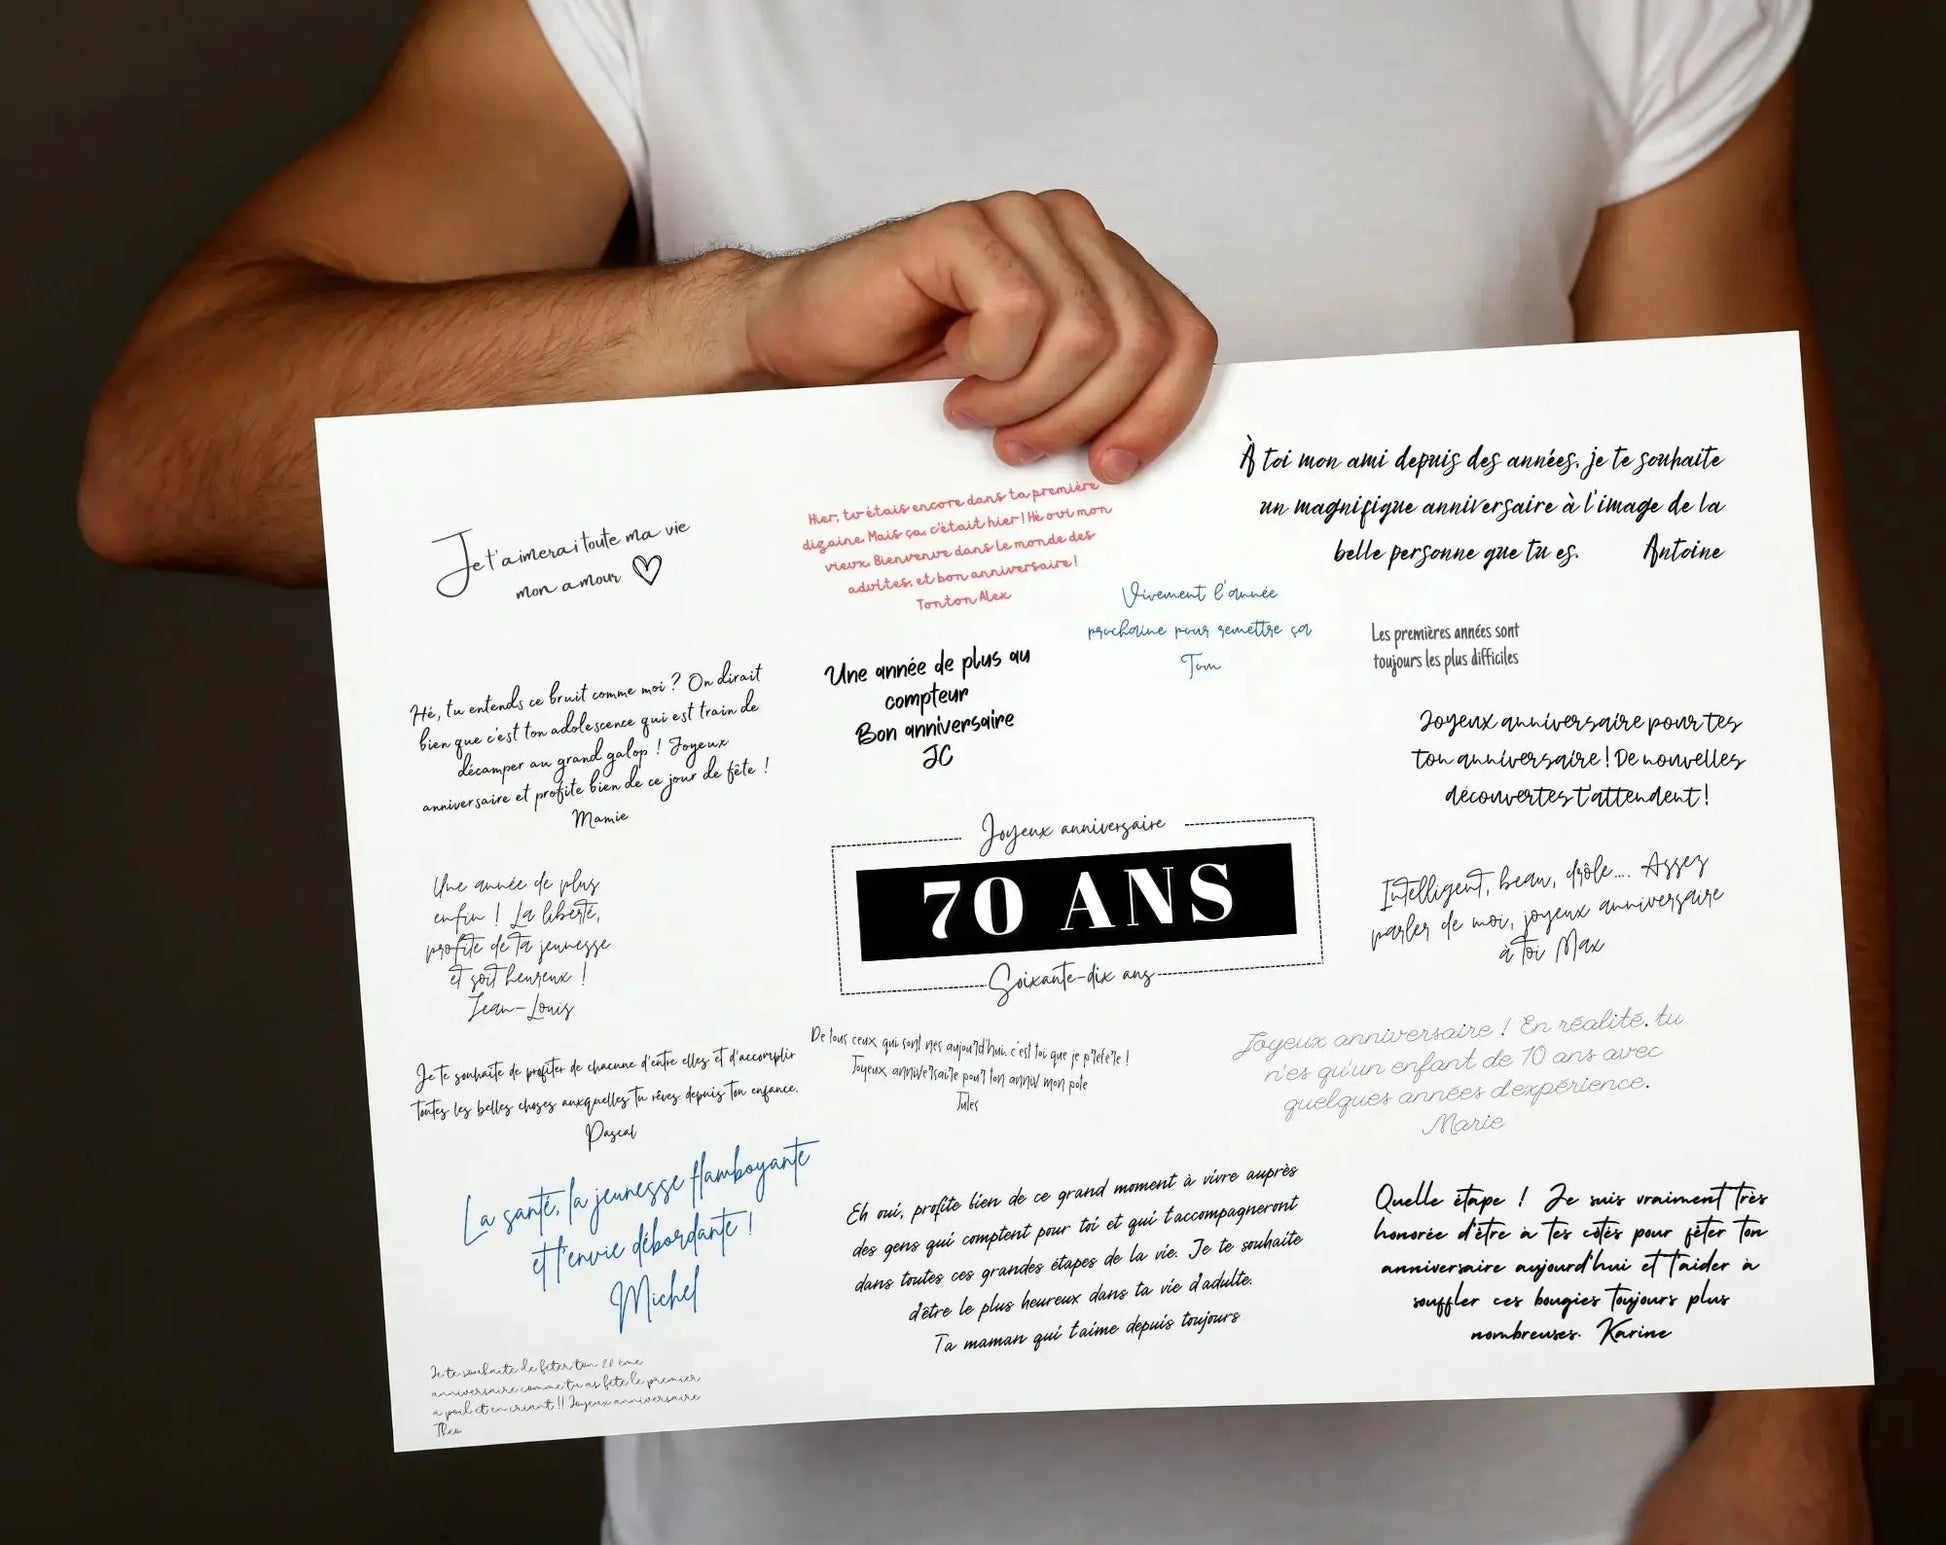 Je t'aimerai toute ma vie
mon amour
Hier, tu étais encore dans ta première
dizaine. Mais ça, c'était hier ! Hé oui mon
vieux. Bienvenue dans le monde des
adultes, et bon anniversaire !
Tonton Alex
À toi mon ami depuis des années, je te souhaite
un magnifique anniversaire à l'image de la
belle personne que tu es. Antoine
Vivement l'année
prochaine pour remettre ça
Tom
Les premières années sont
toujours les plus difficiles
Hé, tu entends ce bruit comme moi ? On dirait
bien que c'est ton adolescence qui est train de
décamper au grand galop ! Joyeux
anniversaire et profite bien de ce jour de fête !
Mamie
Une année de plus au
compteur
Bon anniversaire
JC
Joyeux anniversaire pour tes
ton anniversaire ! De nouvelles
découvertes t'attendent !
Joyeux anniversaire
70 ANS
Soixante-dix ans
Une année de plus
enfin ! La liberté,
profite de ta jeunesse
et soit heureux !
Jean-Louis
Intelligent, beau, drôle.... Assez
parler de moi, joyeux anniversaire
à toi Max
Je te souhaite de profiter de chacune d'entre elles et d'accomplir
toutes les belles choses auxquelles tu rêves depuis ton enfance.
Pascal
De tous ceux qui sont nes aujourd'hui, c'est toi que je préfère !
Joyeux anniversaire pour ton anniv mon pote
Jules
Joyeux anniversaire ! En réalité, tu
n'es qu'un enfant de 70 ans avec
quelques années d'expérience.
Marie
La santé, la jeunesse flamboyante
et l'envie débordante !
Michel
Eh oui, profite bien de ce grand moment à vivre auprès
des gens qui comptent pour toi et qui t'accompagneront
dans toutes ces grandes étapes de la vie. Je te souhaite
d'être le plus heureux dans ta vie d'adulte.
Ta maman qui t'aime depuis toujours
Quelle étape ! Je suis vraiment très
honorée d'être à tes côtés pour fêter ton
anniversaire aujourd'hui et t'aider à
souffler ces bougies toujours plus
nombreuses. Karine
Je te souhaite de fêter ton 20 ème
anniversaire comme tu as fêté le premier
a poil et en criant !! Joyeux anniversaire
Théo